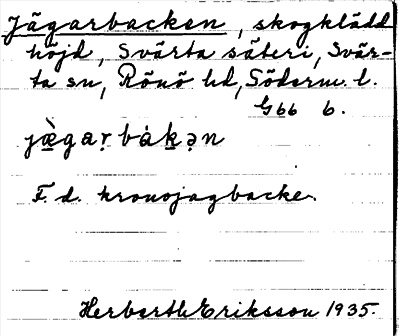 Jägarbacken, skogklädd
höjd, Svärta säteri, Svär-
ta sn, Rönö hd, Söderm. l.
G66 b.
jæ̀gaṛbȧḵən
F. d. kronojagbacke.
Herbert Eriksson 1935.